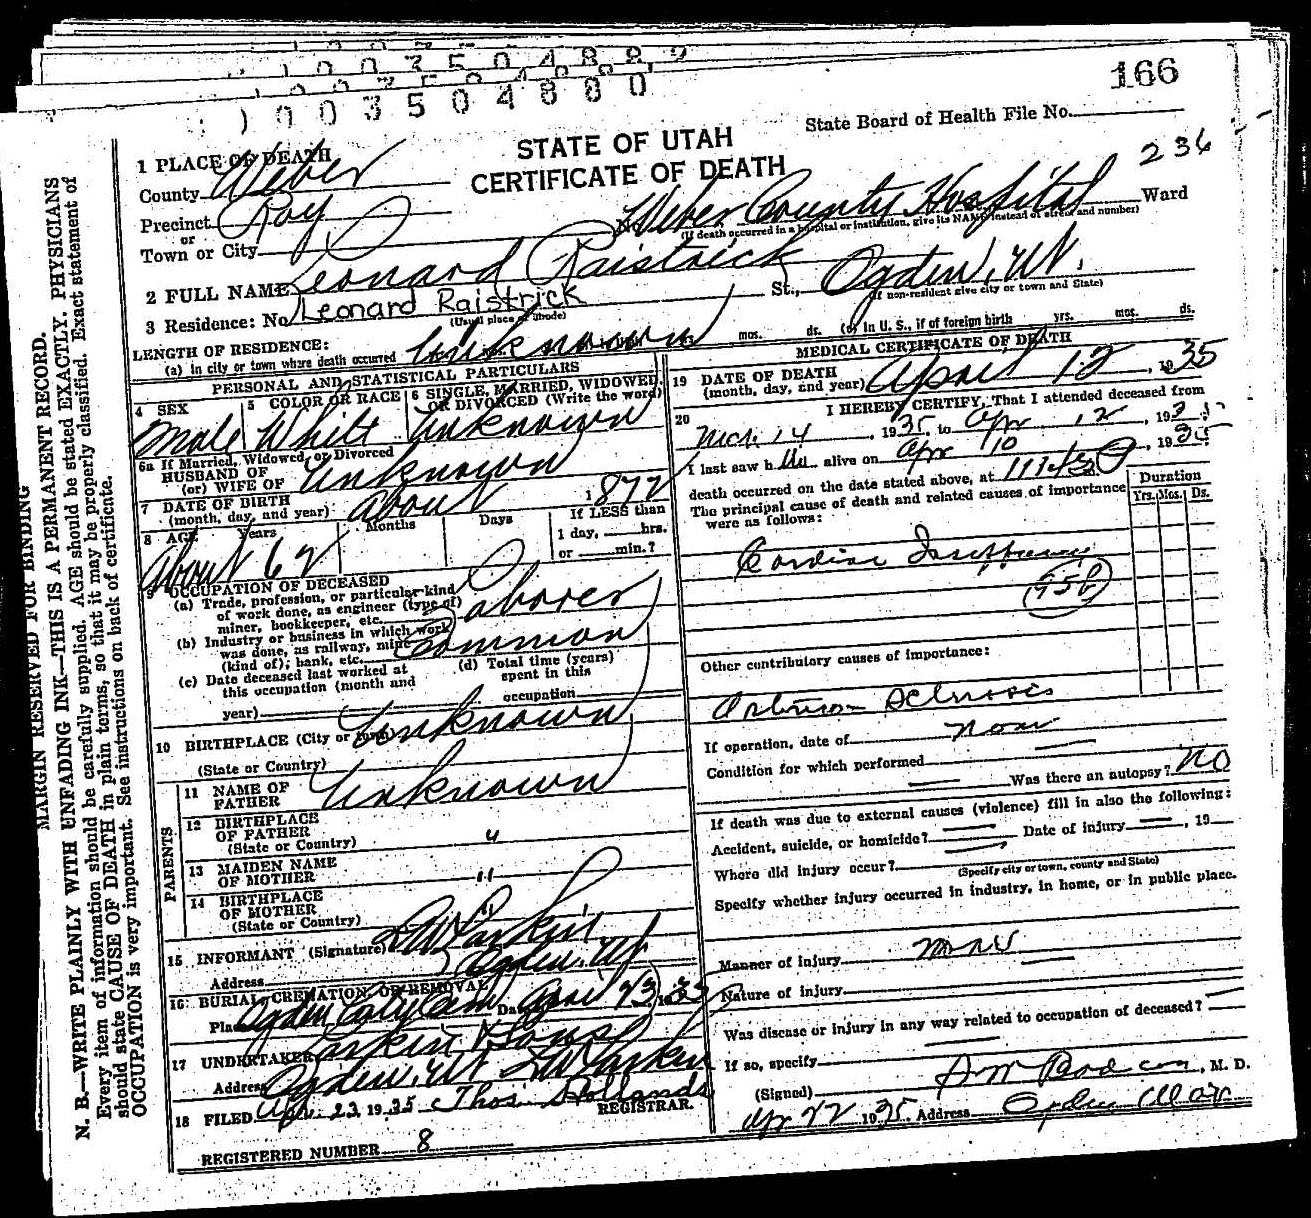 1003504880
166
State Board of Health File No.
STATE OF UTAH
CERTIFICATE OF DEATH
236
1 PLACE OF DEATH
County Weber
Precinct Roy
or
Town or City
No. Weber County Hospital Ward
(If death occurred in a hospital or institution, give its NAME instead of street and number)
2 FULL NAME Leonard Raistrick
3 Residence: No. Leonard Raistrick St., Ogden, Ut.
(Usual place of abode) (If non-resident give city or town and State)
LENGTH OF RESIDENCE:
(a) in city or town where death occurred Unknown mos. ds. (b) In U. S., if of foreign birth yrs. mos. ds.
PERSONAL AND STATISTICAL PARTICULARS
4 SEX Male
5 COLOR OR RACE White
6 SINGLE, MARRIED, WIDOWED, OR DIVORCED (Write the word) Unknown
6a If Married, Widowed, or Divorced
HUSBAND OF
(or) WIFE OF Unknown
7 DATE OF BIRTH
(month, day, and year) about 1872
8 AGE Years Months Days If LESS than
1 day, hrs.
or min.?
About 62
9 OCCUPATION OF DECEASED
(a) Trade, profession, or particular kind
of work done, as engineer (type of)
miner, bookkeeper, etc. Laborer
(b) Industry or business in which work
was done, as railway, mine
(kind of); bank, etc. Common
(c) Date deceased last worked at
this occupation (month and
year)
(d) Total time (years)
spent in this
occupation
10 BIRTHPLACE (City or town) Unknown
(State or Country)
PARENTS
11 NAME OF
FATHER Unknown
12 BIRTHPLACE
OF FATHER
(State or Country) "
13 MAIDEN NAME
OF MOTHER "
14 BIRTHPLACE
OF MOTHER
(State or Country) "
15 INFORMANT (Signature) Larkin
Address Ogden, Ut
16 BURIAL, CREMATION, OR REMOVAL
Place Ogden City Cem Date April 23, 1935
17 UNDERTAKER Larkin & Sons
Address Ogden, Ut Larkin
18 FILED Apr. 23, 1935 Thos. Hollands
REGISTRAR.
REGISTERED NUMBER 8
MEDICAL CERTIFICATE OF DEATH
19 DATE OF DEATH
(month, day, and year) April 12, 1935
20 I HEREBY CERTIFY, That I attended deceased from
Mch. 14, 1935, to Apr 12, 1935
I last saw him alive on Apr 10, 1935
death occurred on the date stated above, at
The principal cause of death and related causes of importance
were as follows:
Duration
Yrs. Mos. Ds.
Cardiac
95b
Other contributory causes of importance:
Sclerosis
If operation, date of none
Condition for which performed
Was there an autopsy? No
If death was due to external causes (violence) fill in also the following:
Accident, suicide, or homicide? Date of injury , 19
Where did injury occur?
(Specify city or town, county and State)
Specify whether injury occurred in industry, in home, or in public place.
Manner of injury
Nature of injury
Was disease or injury in any way related to occupation of deceased?
If so, specify
(Signed) , M. D.
Apr 22 1935 Address Ogden Utah
MARGIN RESERVED FOR BINDING
N. B.—WRITE PLAINLY WITH UNFADING INK—THIS IS A PERMANENT RECORD.
Every item of information should be carefully supplied. AGE should be stated EXACTLY. PHYSICIANS
should state CAUSE OF DEATH in plain terms, so that it may be properly classified. Exact statement of
OCCUPATION is very important. See instructions on back of certificate.